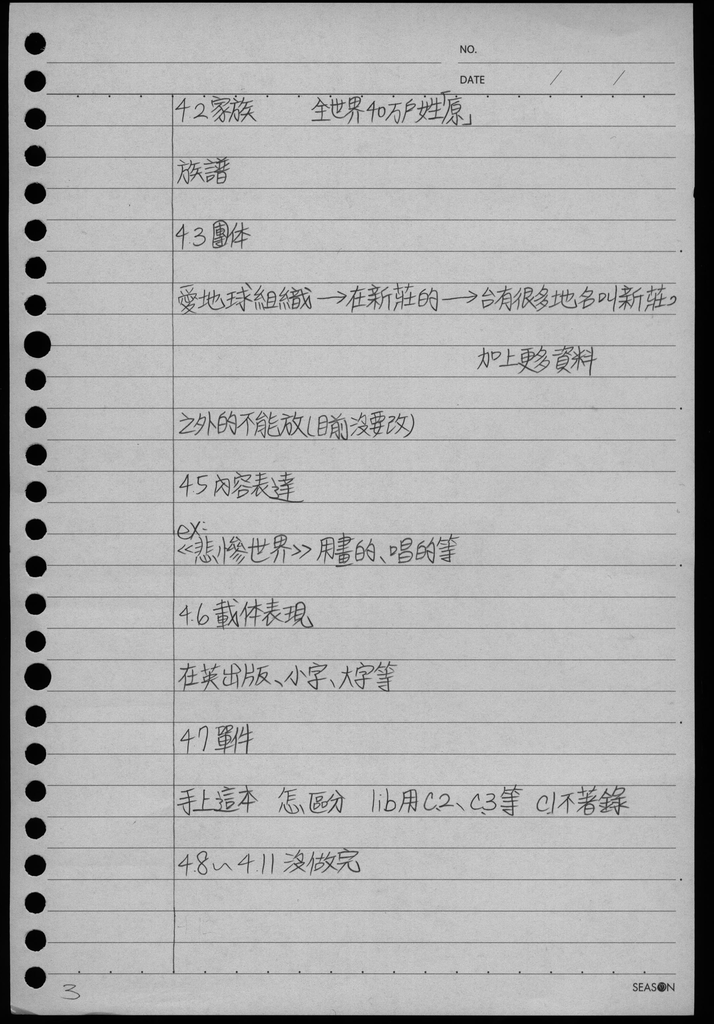 NO.
DATE / /
4.2 家族 全世界40万户姓「原」
族譜
4.3 團体
愛地球組織→在新莊的→台有很多地名叫新莊,
加上更多資料
之外的不能放(目前沒要改)
4.5 內容表達
ex:
《悲慘世界》用畫的、唱的等
4.6 載体表現
在英出版、小字、大字等
4.7 單件
手上這本 怎區分 lib用c.2、c.3等 c.1不著錄
4.8~4.11 沒做完
3
SEASON